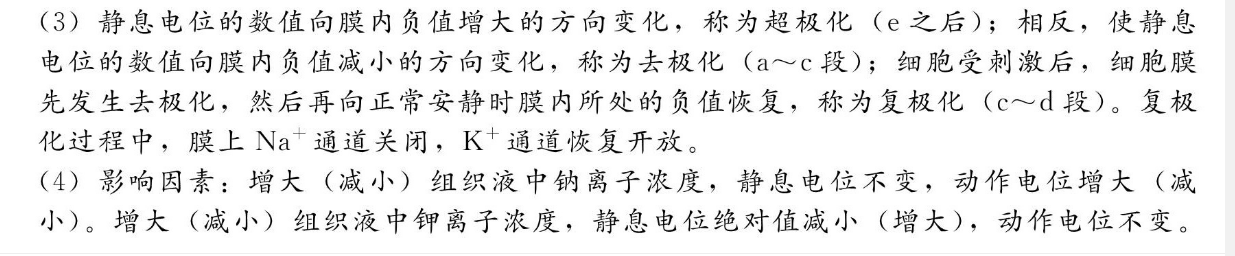 (3) 静息电位的数值向膜内负值增大的方向变化，称为超极化（e 之后）；相反，使静息
电位的数值向膜内负值减小的方向变化，称为去极化（a～c 段）；细胞受刺激后，细胞膜
先发生去极化，然后再向正常安静时膜内所处的负值恢复，称为复极化（c～d 段）。复极
化过程中，膜上 Na⁺ 通道关闭，K⁺ 通道恢复开放。
(4) 影响因素：增大（减小）组织液中钠离子浓度，静息电位不变，动作电位增大（减
小）。增大（减小）组织液中钾离子浓度，静息电位绝对值减小（增大），动作电位不变。